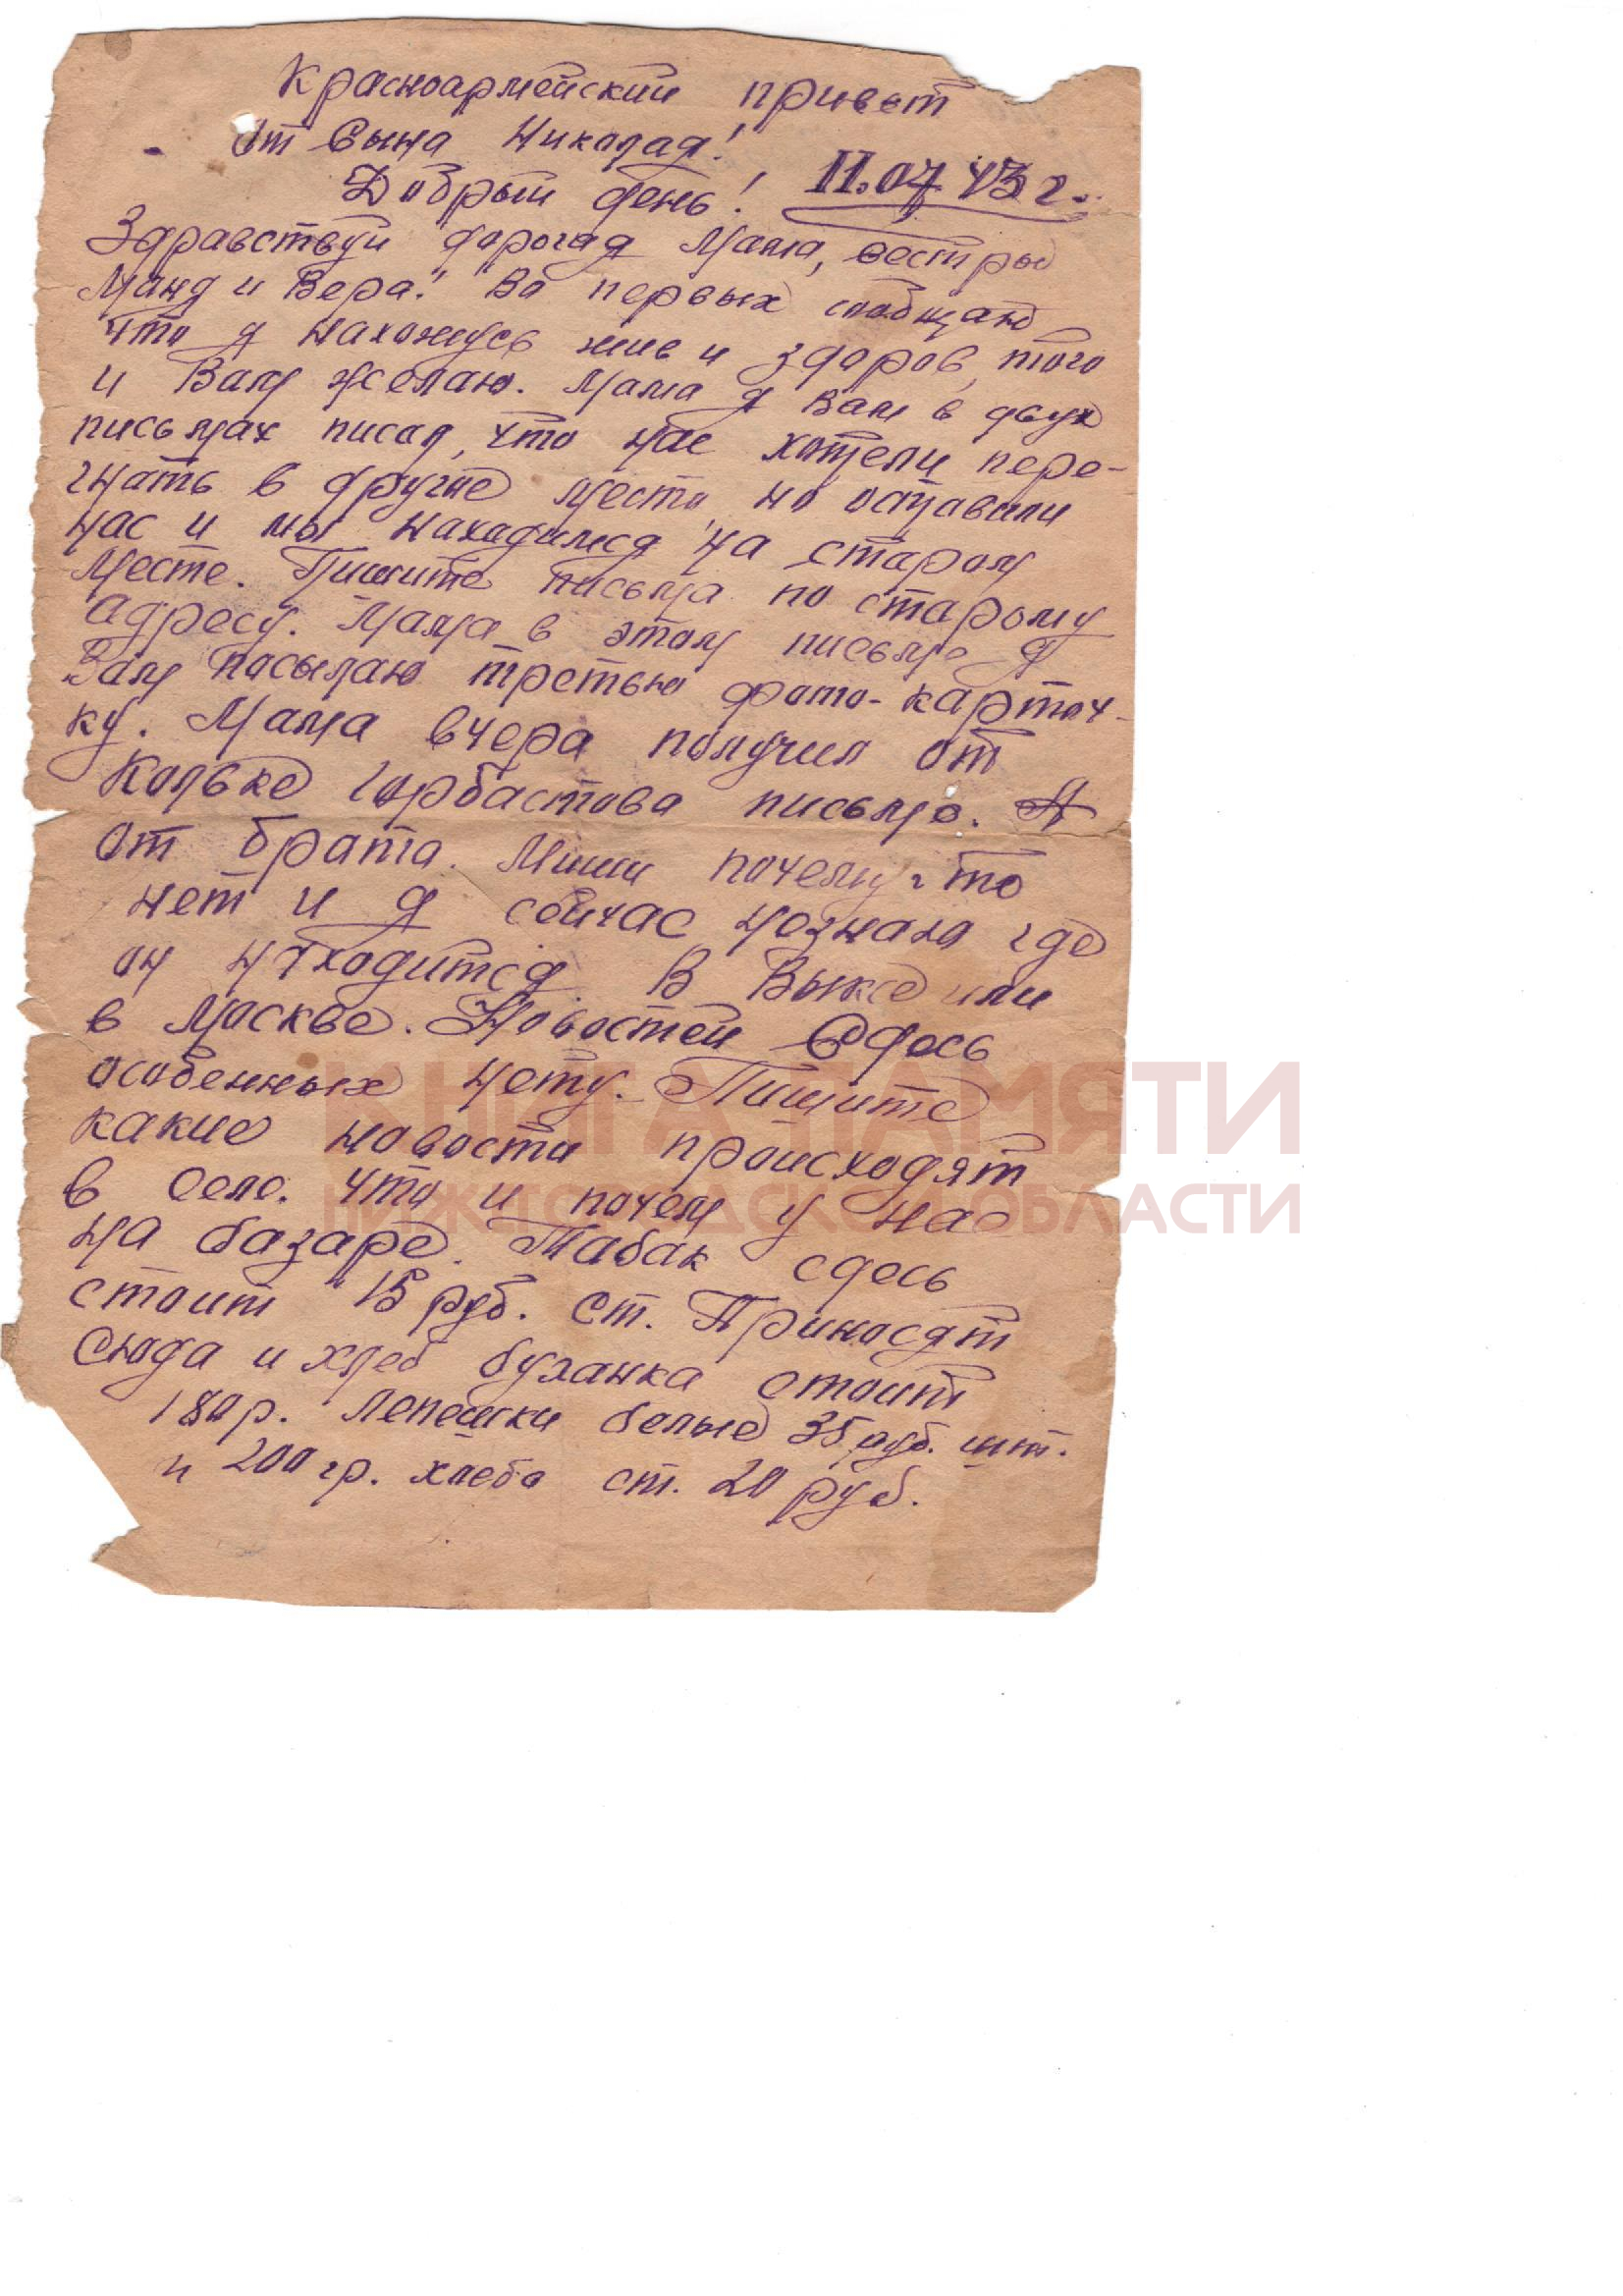 Красноармейский привет
от Сына Николая!
Добрый день! 11.07 43 г.
Здравствуй дорогая Мама, сестры
Маня и Вера! Во первых сообщаю
что я нахожусь жив и здоров, того
и Вам желаю. Мама я Вам в двух
письмах писал, что нас хотели пере-
гнать в другое место но оставили
нас и мы находимся на старом
месте. Пишите письма по старому
адресу. Мама в этом письме я
Вам посылаю третью фото-карточ-
ку. Мама вчера получил от
Кольке Горбастова письмо. А
от брата Миши почему-то
нет и я сейчас незнаю где
он находится В Выксе или
в Москве. Новостей сдесь
особенных нету. Пишите
какие новости происходят
в селе. Что и почем у нас
на базаре. Табак сдесь
стоит 15 руб. ст. Приносят
сюда и хлеб буханка стоит
180 р. Лепешки белые 35 руб. шт.
и 200 гр. хлеба ст. 20 руб.
КНИГА ПАМЯТИ
НИЖЕГОРОДСКОЙ ОБЛАСТИ